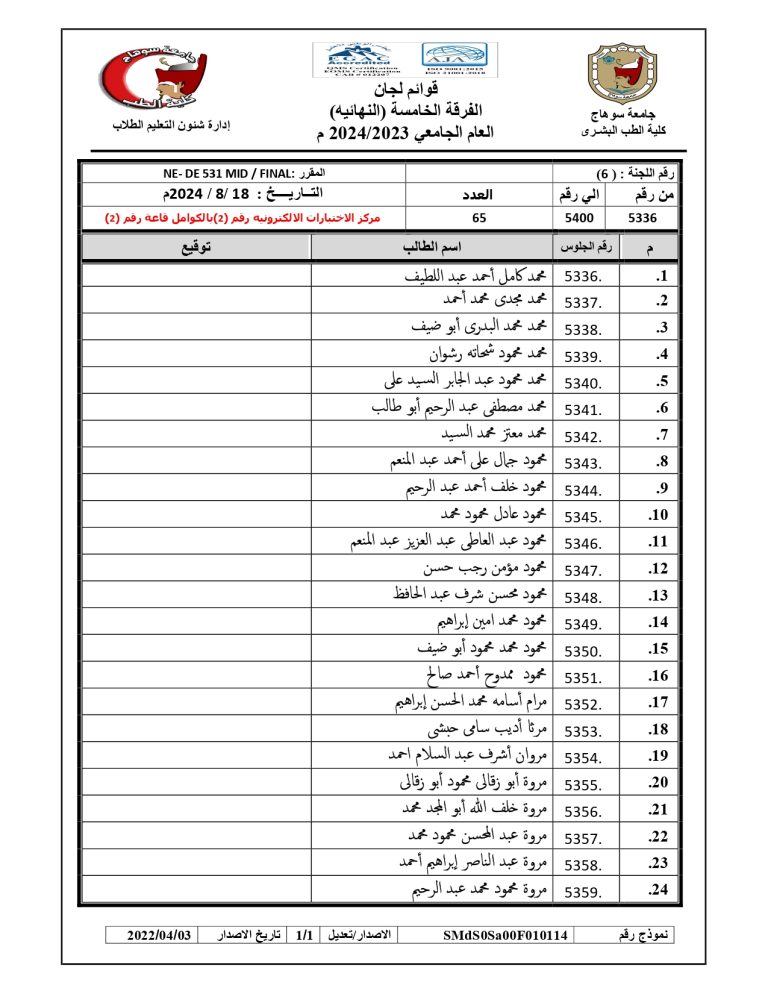 جامعة سوهاج
كلية الطب البشرى
EGAC
Accredited
QMS Certification
EOMS Certification
CAB # 012207
AJA
ISO 9001:2015
ISO 21001:2018
قوائم لجان
الفرقة الخامسة (النهائيه)
العام الجامعي 2024/2023 م
جامعة سوهاج
كلية الطب
إدارة شئون التعليم الطلاب
رقم اللجنة : ( 6) المقرر :NE- DE 531 MID / FINAL
من رقم الي رقم العدد التــاريـــــخ : 18 /8 / 2024م
5336 5400 65 مركز الاختبارات الالكترونيه رقم (2)بالكوامل قاعة رقم (2)
م رقم الجلوس اسم الطالب توقيع
1. 5336. محمد كامل أحمد عبد اللطيف
2. 5337. محمد مجدى محمد أحمد
3. 5338. محمد محمد البدرى أبو ضيف
4. 5339. محمد محمود شحاته رشوان
5. 5340. محمد محمود عبد الجابر السيد على
6. 5341. محمد مصطفى عبد الرحيم أبو طالب
7. 5342. محمد معتز محمد السيد
8. 5343. محمود جمال على أحمد عبد المنعم
9. 5344. محمود خلف أحمد عبد الرحيم
10. 5345. محمود عادل محمود محمد
11. 5346. محمود عبد العاطى عبد العزيز عبد المنعم
12. 5347. محمود مؤمن رجب حسن
13. 5348. محمود محسن شرف عبد الحافظ
14. 5349. محمود محمد امين إبراهيم
15. 5350. محمود محمد محمود أبو ضيف
16. 5351. محمود ممدوح أحمد صالح
17. 5352. مرام أسامه محمد الحسن إبراهيم
18. 5353. مرثا أديب سامى حبشى
19. 5354. مروان أشرف عبد السلام احمد
20. 5355. مروة أبو زقالى محمود أبو زقالى
21. 5356. مروة خلف الله أبو المجد محمد
22. 5357. مروة عبد المحسن محمود محمد
23. 5358. مروة عبد الناصر إبراهيم أحمد
24. 5359. مروة محمود محمد عبد الرحيم
نموذج رقم SMdS0Sa00F010114 الاصدار/تعديل 1/1 تاريخ الاصدار 2022/04/03